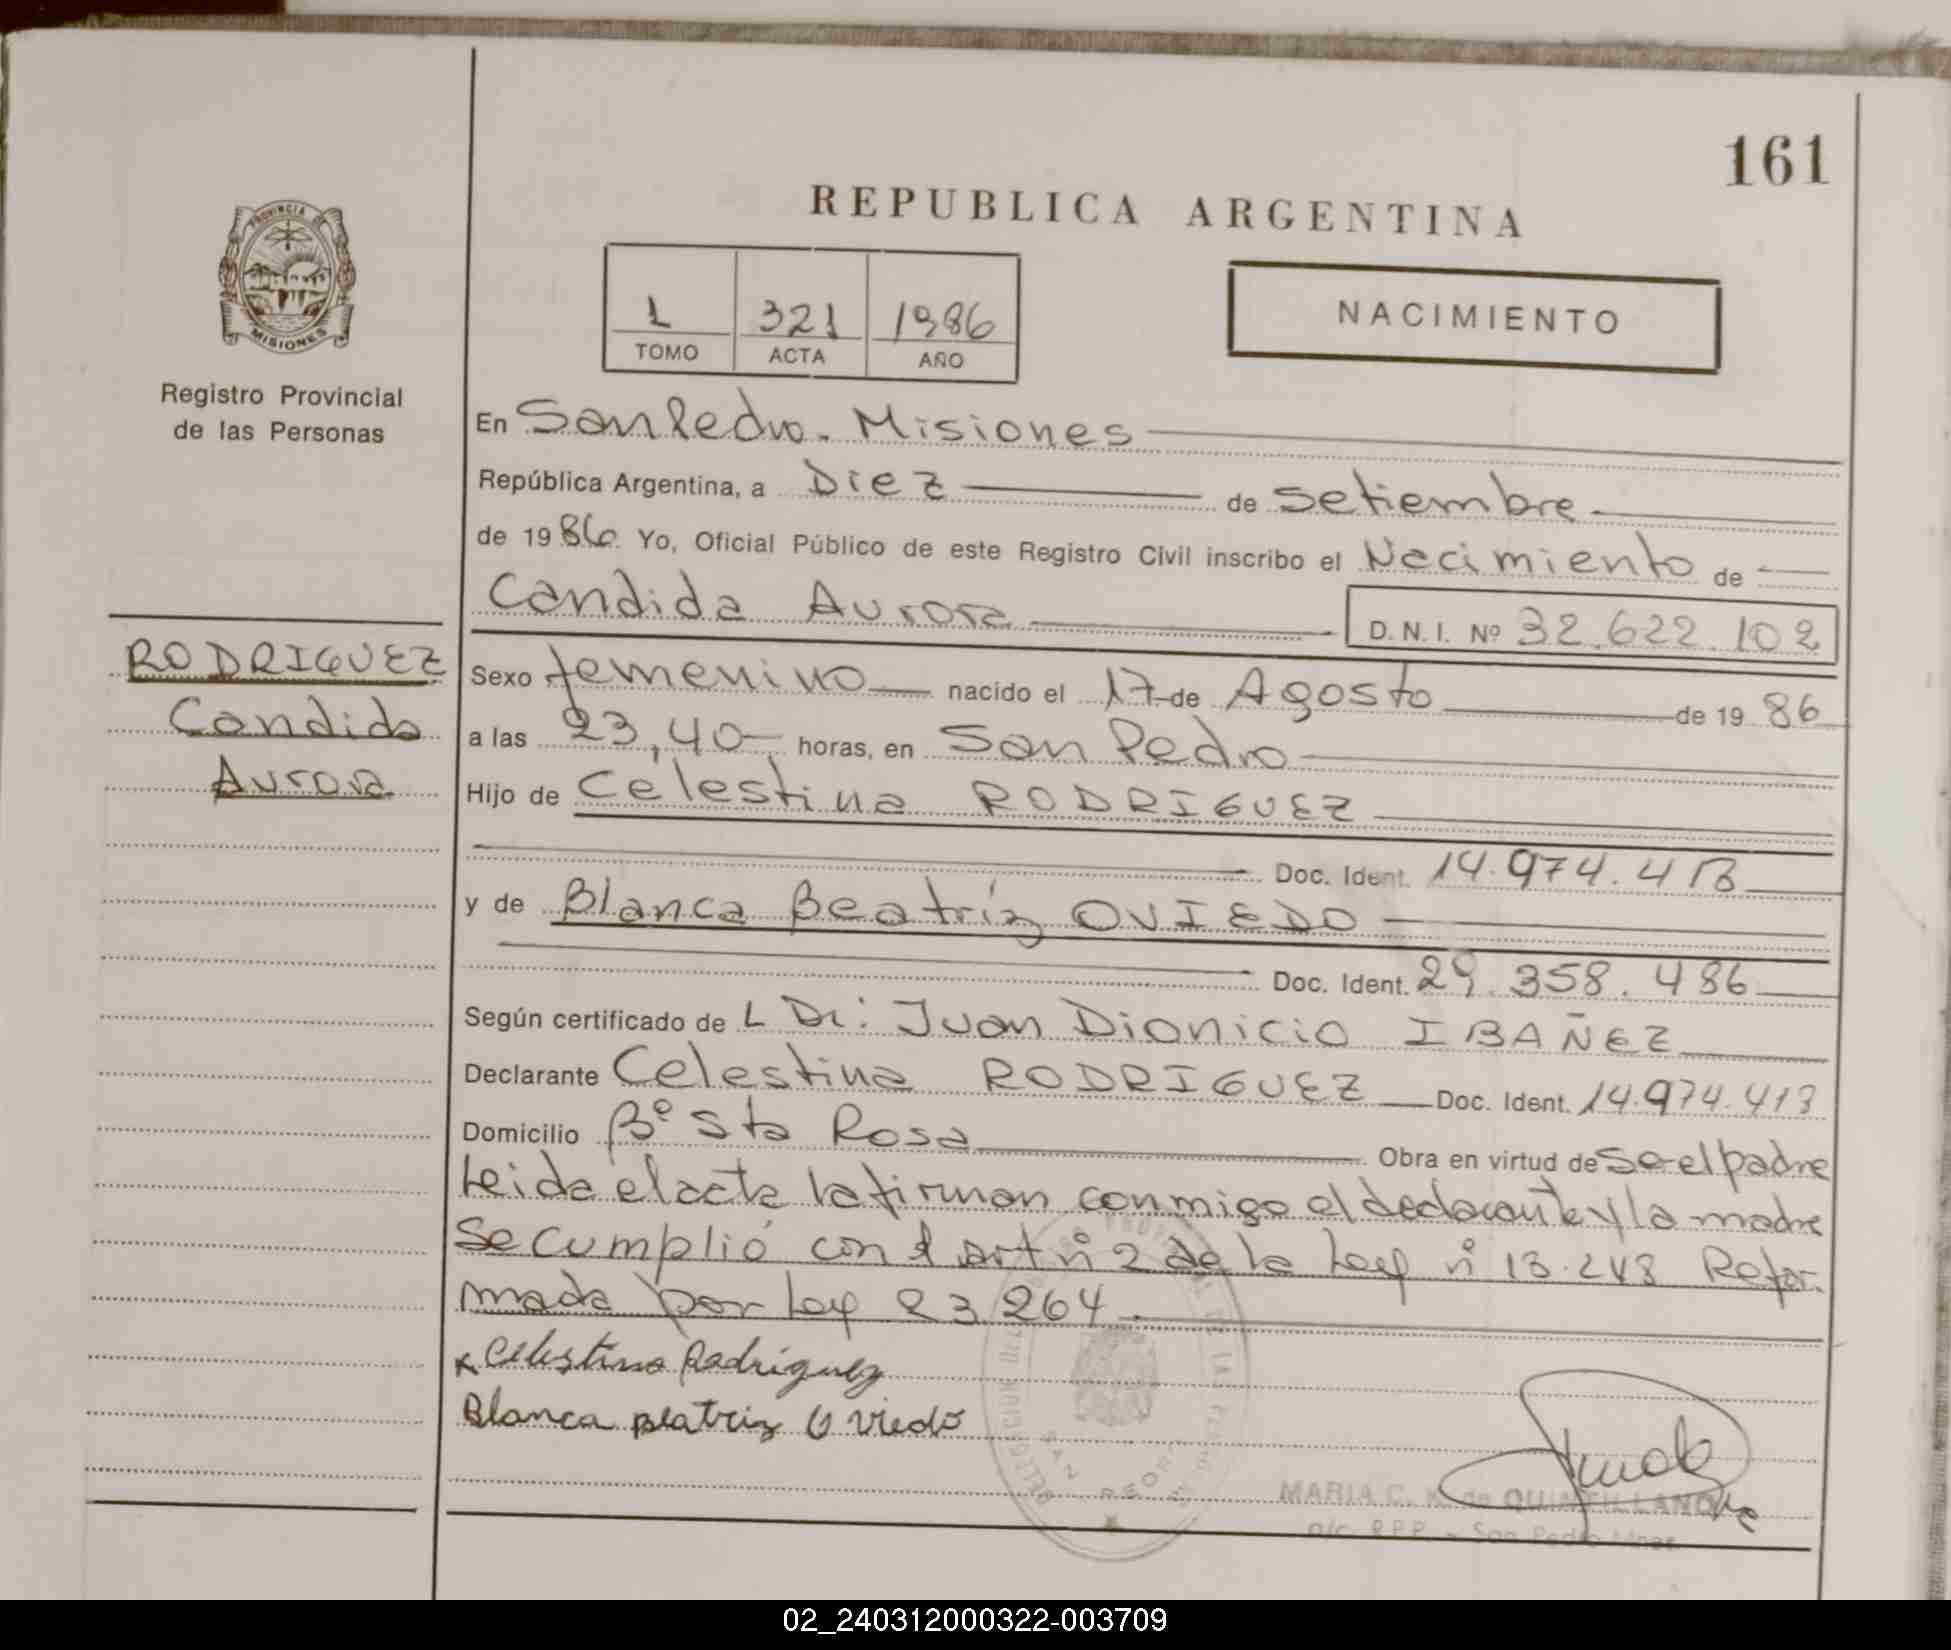 161
REPUBLICA ARGENTINA
PROVINCIA DE
MISIONES
1 321 1986
TOMO ACTA AÑO
NACIMIENTO
Registro Provincial
de las Personas
En San Pedro. Misiones
República Argentina, a Diez de Setiembre
de 1986 Yo, Oficial Público de este Registro Civil inscribo el Nacimiento de
Candida Aurora D.N.I. Nº 32.622.102
RODRIGUEZ
Candida
Aurora
Sexo femenino nacido el 17 de Agosto de 1986
a las 23,40 horas, en San Pedro
Hijo de Celestina RODRIGUEZ
Doc. Ident. 14.974.413
y de Blanca Beatríz OVIEDO
Doc. Ident. 29.358.486
Según certificado de L Dr: Juan Dionicio IBAÑEZ
Declarante Celestina RODRIGUEZ Doc. Ident. 14.974.413
Domicilio Bº Sta Rosa Obra en virtud de Se el padre
Leida el acta la firman conmigo el declarante y la madre
Se cumplió con el art nº 2 de la Ley nº 13.248 Refor
mada por Ley 23 264
x Celestino Rodriguez
Blanca Beatriz Oviedo
SAN PEDRO
MARIA C. K. de QUINTILLAN
a/c R.P.P. - San Pedro Mnes
02_240312000322-003709